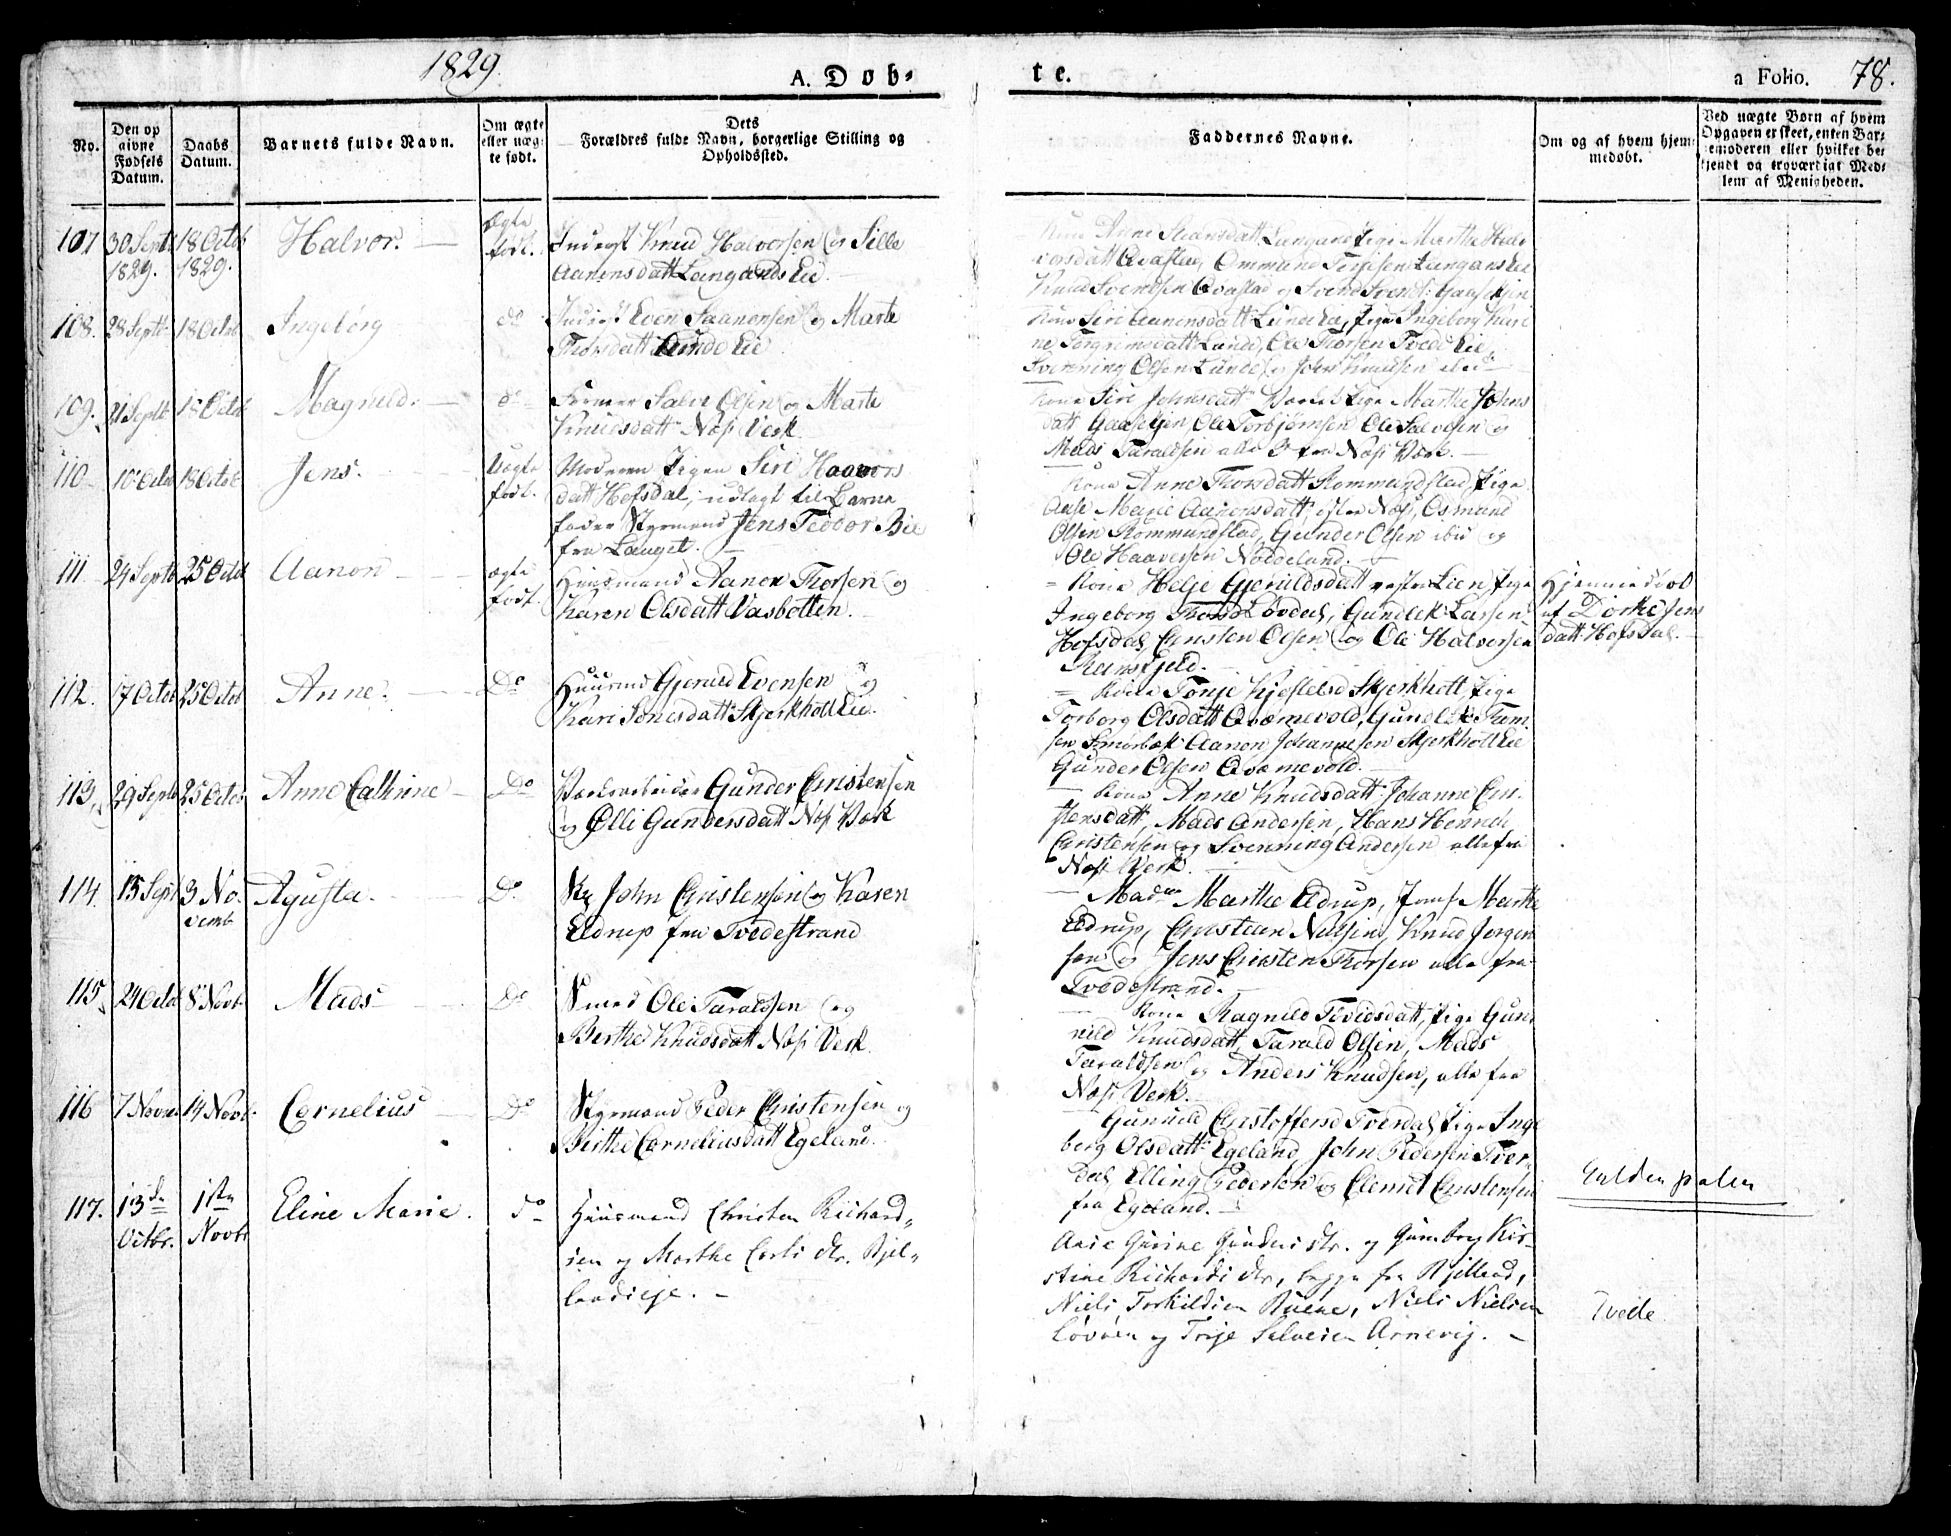 1829.
A. Døb-
te.
a Folio. 78.
No.
Den op
givne
Fødsels
Datum.
Daabs
Datum.
Barnets fulde Navn.
Om ægte
eller uæg-
te født.
Dets
Forældres fulde Navn, borgerlige Stilling og
Opholdssted.
Faddernes Navne.
Om og af hvem hjem-
medøbt.
Ved uægte Børn af hvem
Opgaven er skeet, enten Bar-
nemoderen eller hvilket be-
kjendt og troværdigt Med-
lem af Menigheden.
107 30 Septb 1829. 18 Octob 1829. Halvor. Ægte født.
Inderst Knud Halvorsen og Sille
Aanensdatt Langands Eie.
Kone Anne Langand Pige Marthe Hal-
vorsdatt Qvastad, Ommund Terjesen Langans Eie
Knud Svendsen Qvastad og Svend Svends: Gaaskjen
108. 28 Septb 18 Octob Ingebórg do
Inderst Even Aanonsen og Marte
Thorsdatt Lunde Eie
Kone Siri Aanensdatt Lunde Eie, Pige Ingeborg Kari
ne Torgrimsdatt Lunde, Ole Thorsen Tvede Eie
Svenning Olsen Lunde og John Knudsen
109. 21 Septb 18 Octob Magnild. do
Former Salve Olsen og Marte
Knudsdatt Næs Verk
Kone Siri Johnsdatt Pige Marthe Johns
datt Gaaskjen Ole Torbjørnsen Ole Salvesen og
Mads Taraldsen alle 3 fra Næs Værk.
110 10 Octob 18 Octob Jens. Uægte født.
Moderen Pigen Siri Haavors
datt Hofsdal, udlagt til Barne
fader Styrmand Jens Teodor Bie
fra Langet.
Kone Anne Thorsdatt Rommundstad, Pige
Anne Marie Aanensdatt Næs, Osmund
Olsen Rommundstad, Gunder Olsen ibid og
Ole Haaversen Noddeland.
111 24 Septb 25 Octob Aanon ægte født
Huusmand Aanon Thorsen og
Karen Olsdatt Vasbotten.
Kone Helje Gjeruldsdatt Lien, Pige
Ingeborg Thorsd Lovdal, Gundlek Larsen
Hofsdal, Christen Olsen og Ole Halvorsen
Ramsfjeld.
Hjemmedøbt
af Dorthe Jens
datt Hofsdal.
112. 17 Octob 25 Octob Anne. Do
Huusmd Gjeruld Evensen og
Kari Jensdatt Skjerkholt Eie.
Kone Tonje Kjostelsd Skjerkholt, Pige
Torborg Olsdatt Qvæmevold, Gundlek Trom
sen Smørbæk Aanon Johannesen Skjerkholt Eie
Gunder Olsen Qvæmevold.
113. 29 Septb 25 Octob Anne Cathrine Do
Værksarbeider Gunder Christensen
og Ølli Gundersdatt Næs Værk
Kone Anne Knudsdatt Johanne Chri-
stensdatt, Mads Andersen, Hans Henrik
Christensen og Svenning Andersen alle fra
Næs Verk.
114. 15 Sept 3 No-
vemb Agusta. Do
John Christensen og Karen
Eldrup fra Tvedestrand
Madm Marthe Eldrup, Jomf Marthe
Eldrup, Christian Nielsen, Knud Jorgen
sen og Jens Christen Thorsen alle fra
Tvedestrand.
115. 24 Octob 8 Novb Mads Do
Smed Ole Taraldsen og
Berthe Knudsdatt Næs Verk
Kone Ragnild Tividsdatt, Pige Gun
nild Knudsdatt, Tarald Olsen, Mads
Taraldsen og Anders Knudsen, alle fra
Næs Verk.
116 7 Novem 14 Novb. Cornelius Do
Styrmand Peder Christensen og
Birthe Corneliusdatt Egeland.
Gunnild Christoffersd Tverdal, Pige Inge
borg Olsdatt Egeland, John Pedersen Tver-
dal, Elling Pedersen og Clemet Christensen
fra Egeland.
117. 13de Octbr. 1ste Novbr Eline Marie. do
Huusmand Christen Richard-
sen og Marthe Carls dtr. Kjel-
landseje.
Anne Gurine Gunders dtr. og Gunborg Kir-
stine Richards dtr, begge fra Kjelland,
Niels Torkildsen Buene, Niels Nielsen
Løvøen og Terje Salvesen Arnevig.
Guldenpalen
Tvede